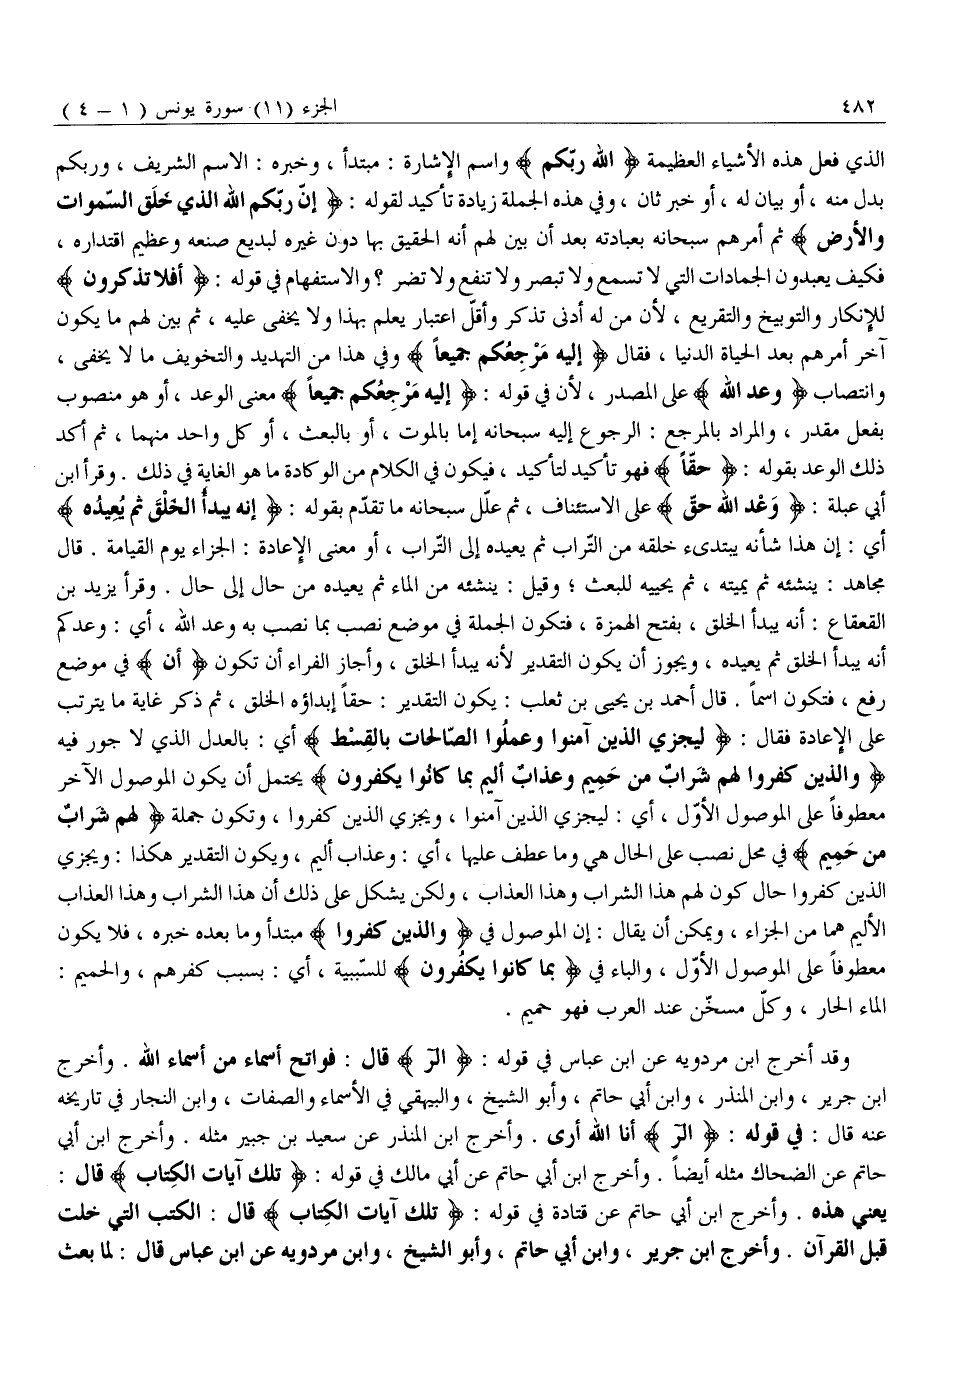 ٤٨٢ الجزء (١١) سورة يونس ( ١ – ٤ )
الذي فعل هذه الأشياء العظيمة ﴿ الله ربّكم ﴾ واسم الإشارة : مبتدأ ، وخبره : الاسم الشريف ، وربكم
بدل منه ، أو بيان له ، أو خبر ثان ، وفي هذه الجملة زيادة تأكيد لقوله : ﴿ إنّ ربّكم الله الذي خَلَق السّموات
والأرض ﴾ ثم أمرهم سبحانه بعبادته بعد أن بين لهم أنه الحقيق بها دون غيره لبديع صنعه وعظيم اقتداره ،
فكيف يعبدون الجمادات التي لا تسمع ولا تبصر ولا تنفع ولا تضر ؟ والاستفهام في قوله : ﴿ أفلا تذكرون ﴾
للإنكار والتوبيخ والتقريع ، لأن من له أدنى تذكر وأقلّ اعتبار يعلم بهذا ولا يخفى عليه ، ثم بين لهم ما يكون
آخر أمرهم بعد الحياة الدنيا ، فقال ﴿ إليه مَرْجِعُكم جميعاً ﴾ وفي هذا من التهديد والتخويف ما لا يخفى ،
وانتصاب ﴿ وعد الله ﴾ على المصدر ، لأن في قوله : ﴿ إليه مَرْجِعُكم جميعاً ﴾ معنى الوعد ، أو هو منصوب
بفعل مقدر ، والمراد بالمرجع : الرجوع إليه سبحانه إما بالموت ، أو بالبعث ، أو كل واحد منهما ، ثم أكد
ذلك الوعد بقوله : ﴿ حقّاً ﴾ فهو تأكيد لتأكيد ، فيكون في الكلام من الوكادة ما هو الغاية في ذلك . وقرأ ابن
أبي عبلة : ﴿ وَعْد الله حقّ ﴾ على الاستئناف ، ثم علّل سبحانه ما تقدّم بقوله : ﴿ إنه يبدأُ الخَلْقَ ثم يُعِيدُه ﴾
أي : إن هذا شأنه يبتدىء خلقه من التّراب ثم يعيده إلى التّراب ، أو معنى الإعادة : الجزاء يوم القيامة . قال
مجاهد : ينشئه ثم يميته ، ثم يحييه للبعث ؛ وقيل : ينشئه من الماء ثم يعيده من حال إلى حال . وقرأ يزيد بن
القعقاع : أنه يبدأ الخلق ، بفتح الهمزة ، فتكون الجملة في موضع نصب بما نصب به وعد الله ، أي : وعدكم
أنه يبدأ الخلق ثم يعيده ، ويجوز أن يكون التقدير لأنه يبدأ الخلق ، وأجاز الفراء أن تكون ﴿ أن ﴾ في موضع
رفع ، فتكون اسماً . قال أحمد بن يحيى بن ثعلب : يكون التقدير : حقاً إبداؤه الخلق ، ثم ذكر غاية ما يترتب
على الإعادة فقال : ﴿ ليجزي الذين آمنوا وعملُوا الصّالحات بالقِسْط ﴾ أي : بالعدل الذي لا جور فيه
﴿ والذين كفروا لهم شَرابٌ من حَمِيم وعذابٌ أليم بما كانُوا يكفرون ﴾ يحتمل أن يكون الموصول الآخر
معطوفاً على الموصول الأوّل ، أي : ليجزي الذين آمنوا ، ويجزي الذين كفروا ، وتكون جملة ﴿ لهم شرابٌ
من حَمِيم ﴾ في محل نصب على الحال هي وما عطف عليها ، أي : وعذاب أليم ، ويكون التقدير هكذا : ويجزي
الذين كفروا حال كون لهم هذا الشراب وهذا العذاب ، ولكن يشكل على ذلك أن هذا الشراب وهذا العذاب
الأليم هما من الجزاء ، ويمكن أن يقال : إن الموصول في ﴿ والذين كفروا ﴾ مبتدأ وما بعده خبره ، فلا يكون
معطوفاً على الموصول الأوّل ، والباء في ﴿ بما كانوا يكفُرون ﴾ للسّببية ، أي : بسبب كفرهم ، والحميم :
الماء الحار ، وكلّ مسخّن عند العرب فهو حميم .
وقد أخرج ابن مردويه عن ابن عباس في قوله : ﴿ الٓر ﴾ قال : فواتح أسماء من أسماء الله . وأخرج
ابن جرير ، وابن المنذر ، وابن أبي حاتم ، وأبو الشيخ ، والبيهقي في الأسماء والصفات ، وابن النجار في تاريخه
عنه قال : في قوله : ﴿ الٓر ﴾ أنا الله أرى . وأخرج ابن المنذر عن سعيد بن جبير مثله . وأخرج ابن أبي
حاتم عن الضحاك مثله أيضاً . وأخرج ابن أبي حاتم عن أبي مالك في قوله : ﴿ تلك آيات الكِتاب ﴾ قال :
يعني هذه . وأخرج ابن أبي حاتم عن قتادة في قوله : ﴿ تلك آيات الكِتاب ﴾ قال : الكتب التي خلت
قبل القرآن . وأخرج ابن جرير ، وابن أبي حاتم ، وأبو الشيخ ، وابن مردويه عن ابن عباس قال : لما بعث